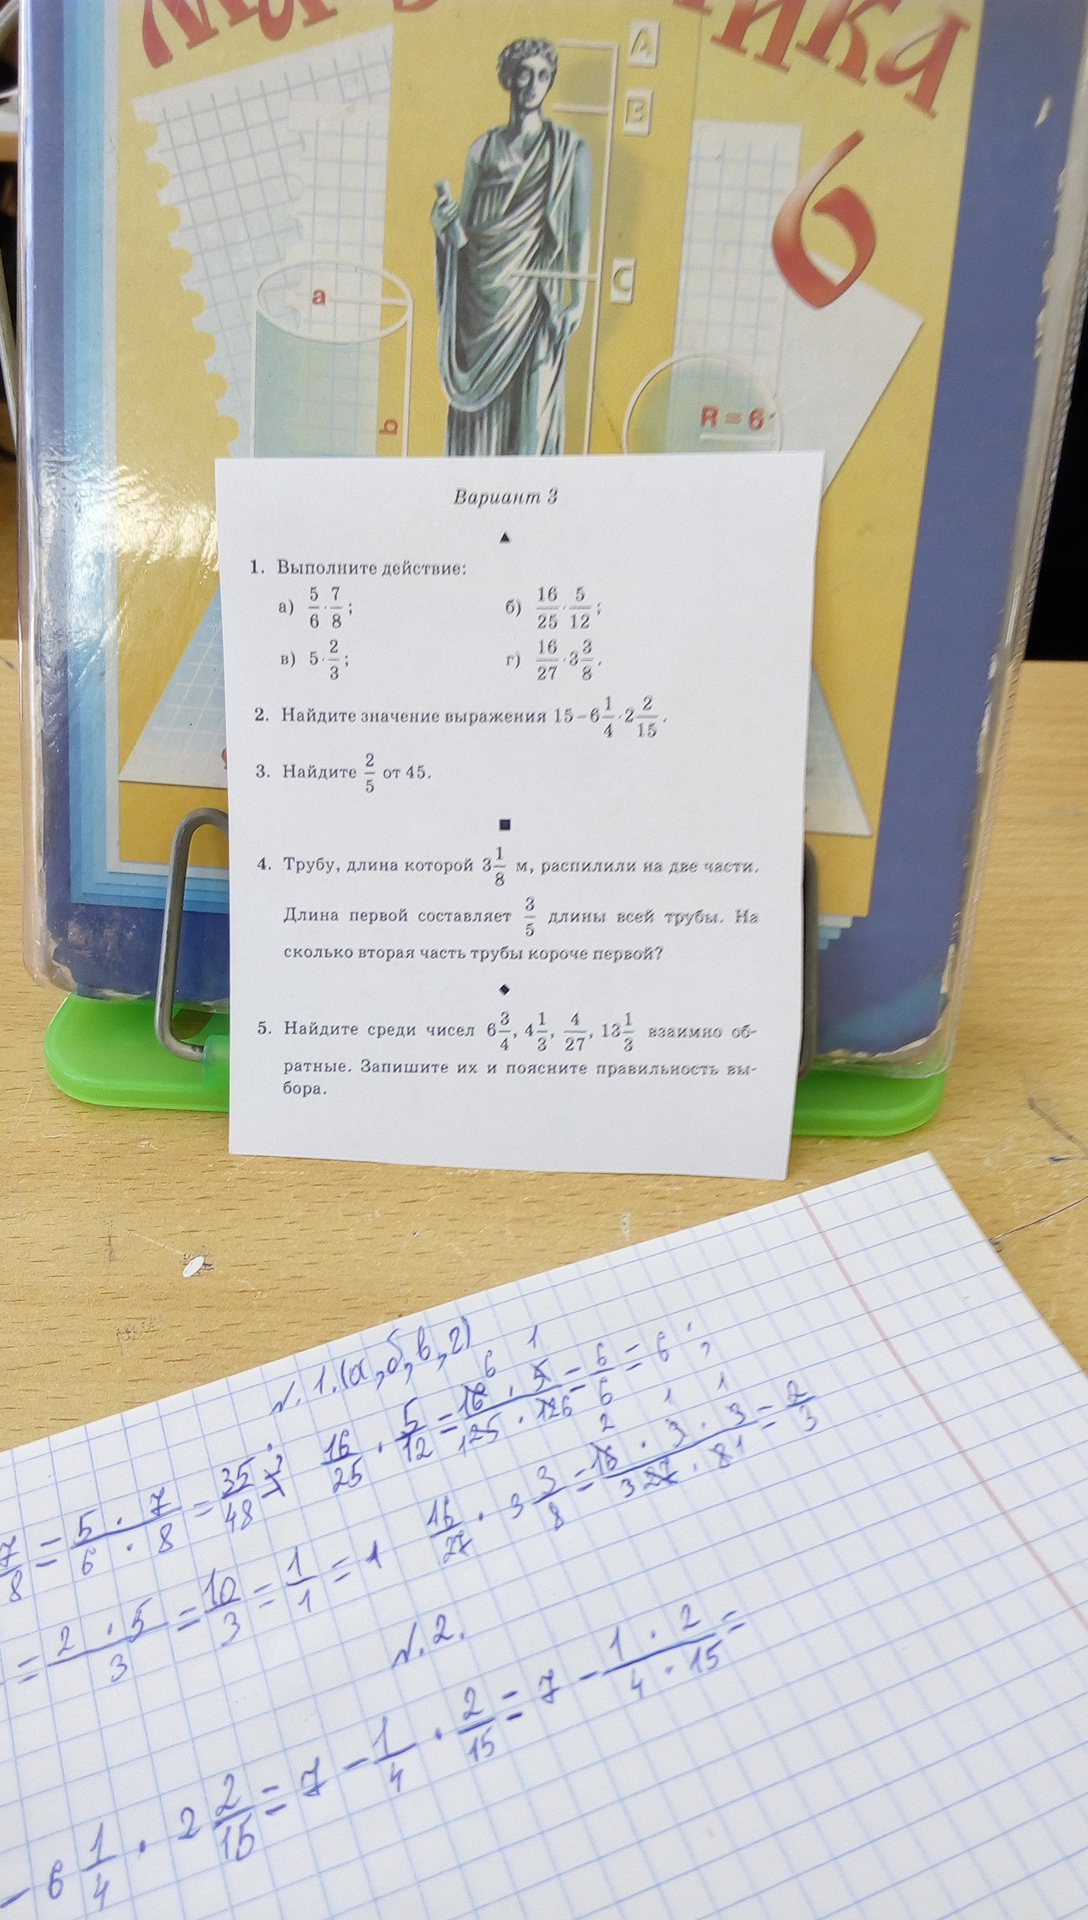 A
B
6
C
a
b
R = 6
Вариант 3
▲
1. Выполните действие:
а) 5/6 · 7/8; б) 16/25 · 5/12;
в) 5 · 2/3; г) 16/27 · 3 3/8.
2. Найдите значение выражения 15 – 6 1/4 · 2 2/15.
3. Найдите 2/5 от 45.
■
4. Трубу, длина которой 3 1/8 м, распилили на две части.
Длина первой составляет 3/5 длины всей трубы. На
сколько вторая часть трубы короче первой?
◆
5. Найдите среди чисел 6 3/4, 4 1/3, 4/27, 13 1/3 взаимно об-
ратные. Запишите их и поясните правильность вы-
бора.
√. 1.(а,б,в,г)
7/8 = 5 · 7/6 · 8 = 35/48; 16/25 · 5/12 = 16 · 5/125 · 126 = 6/6 = 6;
= 2 · 5/3 = 10/3 = 1/1 = 1 16/27 · 3 3/8 = 16 · 3 · 3/3 27 · 8 1 = 2/3
√. 2.
– 6 1/4 · 2 2/15 = 7 – 1/4 · 2/15 = 7 – 1 · 2/4 · 15 =